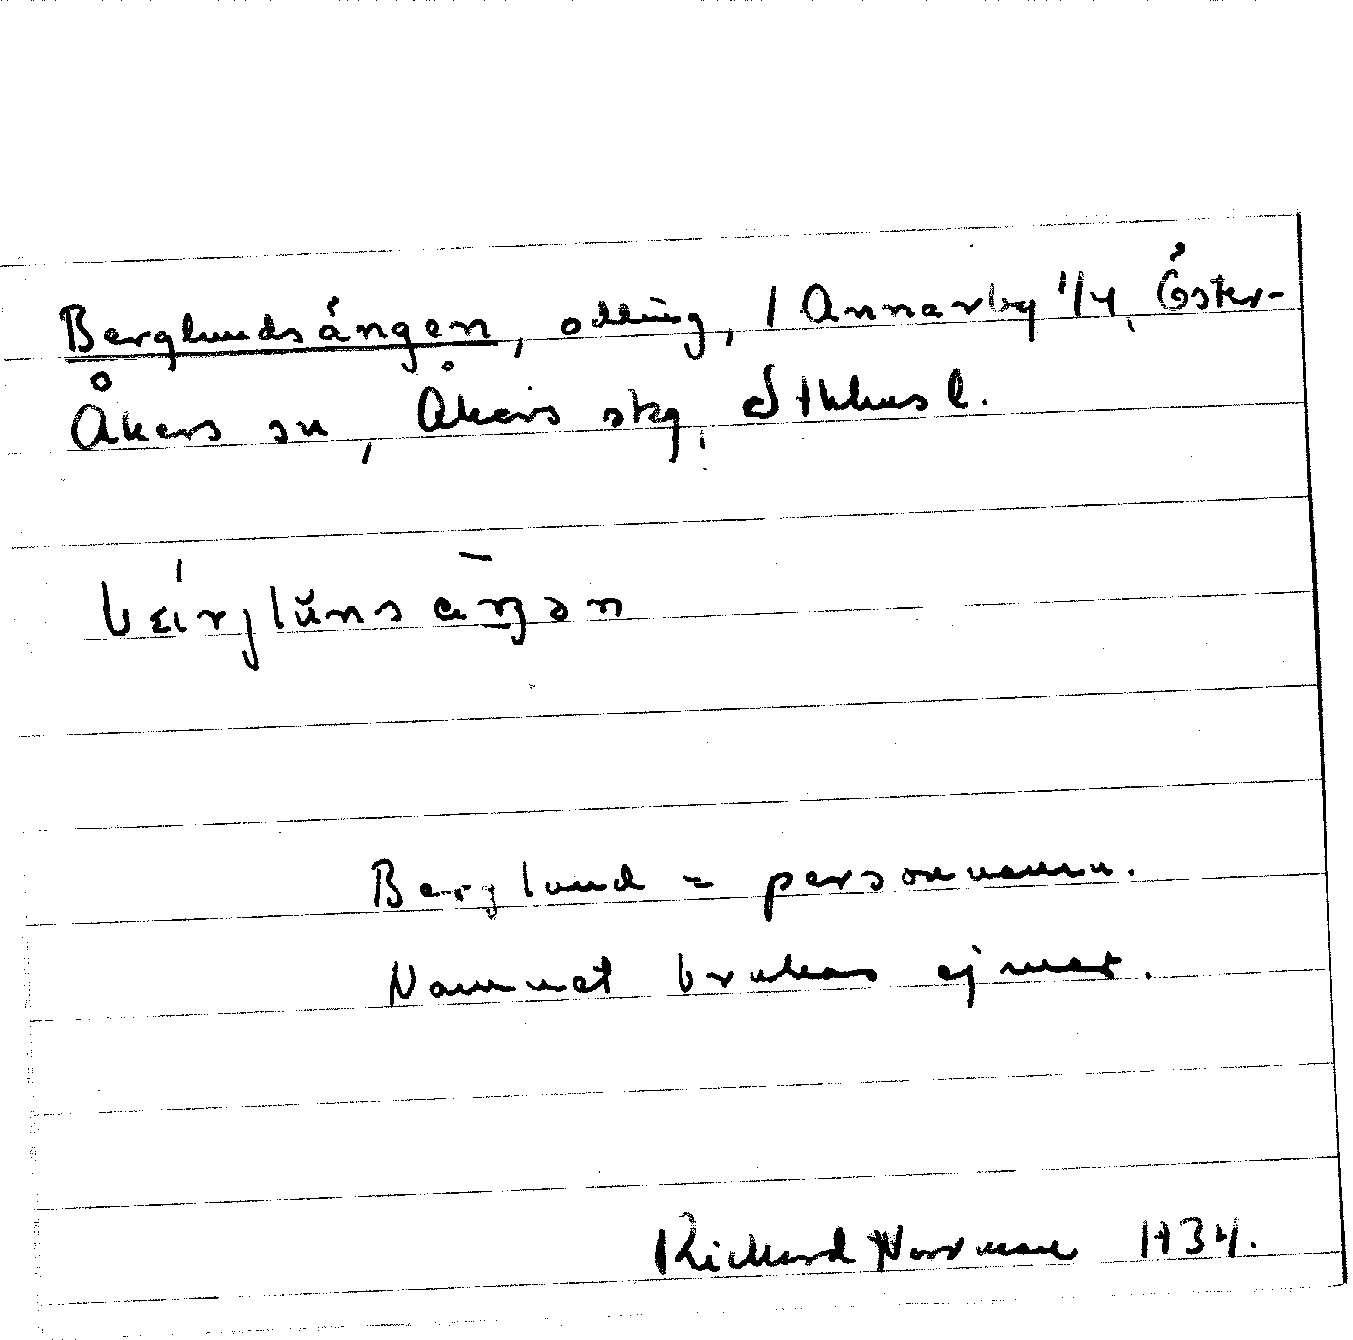 Berglundsängen, odling, / Annarby 1/4, Öster-
Åkers sn, Åkers skg, Sthlms l.
Berglund = personnamn.
Namnet brukas ej mer.
Richard Norrman 1934.